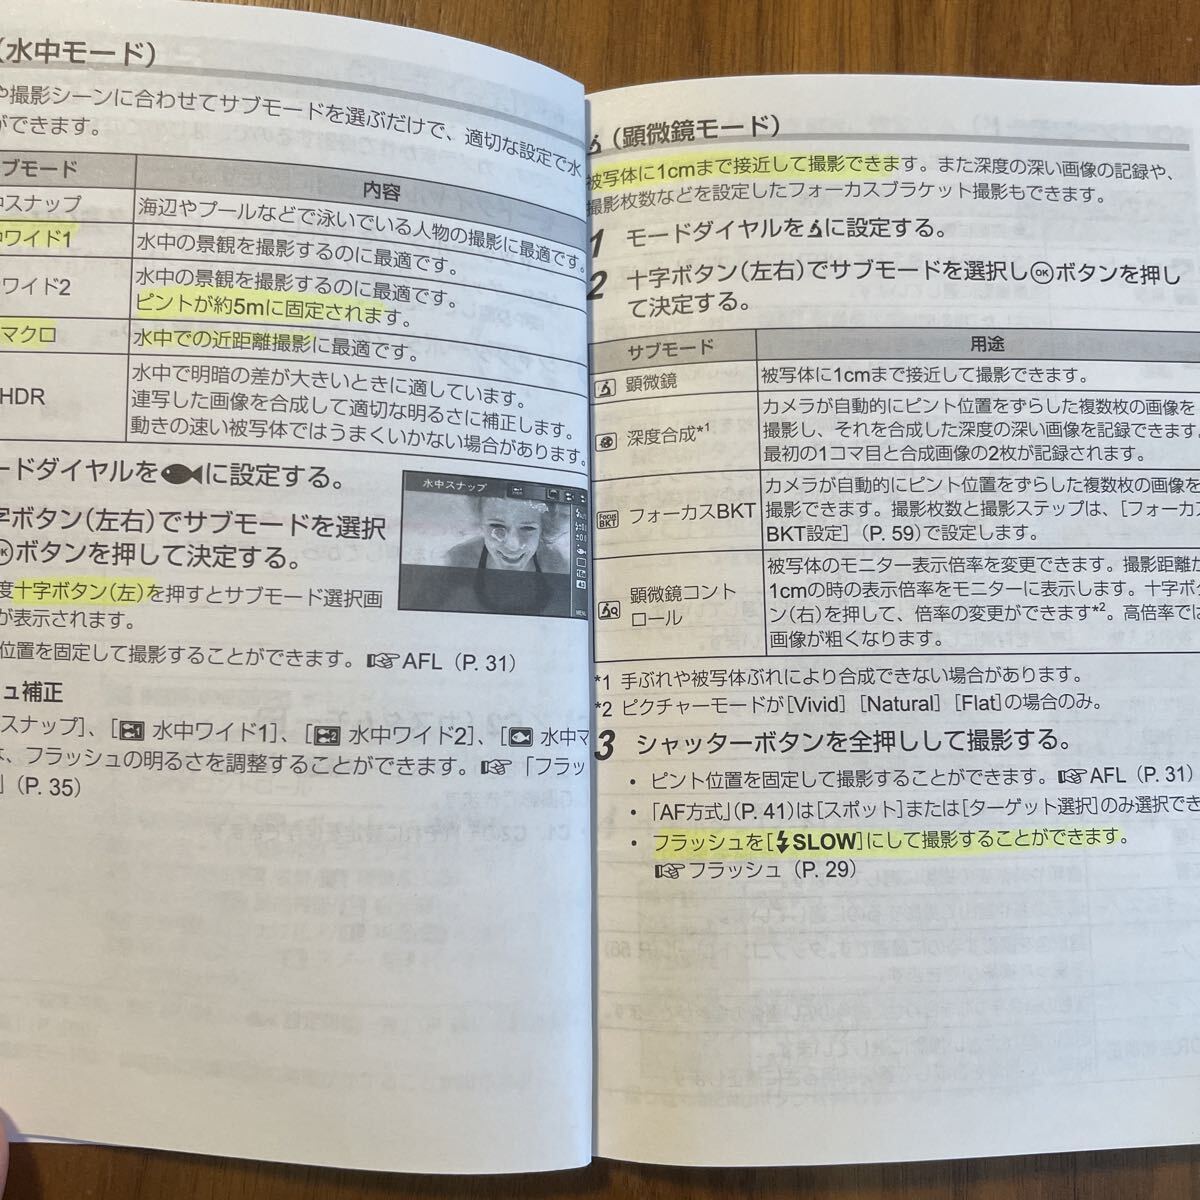 (水中モード)
や撮影シーンに合わせてサブモードを選ぶだけで、適切な設定で水
ができます。
ブモード 内容
中スナップ 海辺やプールなどで泳いでいる人物の撮影に最適です。
中ワイド1 水中の景観を撮影するのに最適です。
ワイド2 水中の景観を撮影するのに最適です。
ピントが約5mに固定されます。
マクロ 水中での近距離撮影に最適です。
HDR 水中で明暗の差が大きいときに適しています。
連写した画像を合成して適切な明るさに補正します。
動きの速い被写体ではうまくいかない場合があります。
ードダイヤルを に設定する。
字ボタン(左右)でサブモードを選択
ボタンを押して決定する。
水中スナップ
MENU
度十字ボタン(左)を押すとサブモード選択画
が表示されます。
位置を固定して撮影することができます。☞AFL (P. 31)
ュ補正
スナップ]、[ 水中ワイド1]、[ 水中ワイド2]、[ 水中マ
は、フラッシュの明るさを調整することができます。☞「フラッ
」(P. 35)
(顕微鏡モード)
被写体に1cmまで接近して撮影できます。また深度の深い画像の記録や、
撮影枚数などを設定したフォーカスブラケット撮影もできます。
1 モードダイヤルを に設定する。
2 十字ボタン(左右)でサブモードを選択しOKボタンを押し
て決定する。
サブモード 用途
顕微鏡 被写体に1cmまで接近して撮影できます。
深度合成*1 カメラが自動的にピント位置をずらした複数枚の画像を
撮影し、それを合成した深度の深い画像を記録できます。
最初の1コマ目と合成画像の2枚が記録されます。
Focus BKT フォーカスBKT カメラが自動的にピント位置をずらした複数枚の画像を
撮影できます。撮影枚数と撮影ステップは、[フォーカ
BKT設定] (P. 59)で設定します。
顕微鏡コント
ロール
被写体のモニター表示倍率を変更できます。撮影距離が
1cmの時の表示倍率をモニターに表示します。十字ボタ
ン(右)を押して、倍率の変更ができます*2。高倍率では
画像が粗くなります。
*1 手ぶれや被写体ぶれにより合成できない場合があります。
*2 ピクチャーモードが[Vivid] [Natural] [Flat]の場合のみ。
3 シャッターボタンを全押しして撮影する。
• ピント位置を固定して撮影することができます。☞AFL (P. 31)
• 「AF方式」(P. 41)は[スポット]または[ターゲット選択]のみ選択でき
• フラッシュを[⚡SLOW]にして撮影することができます。
☞フラッシュ (P. 29)